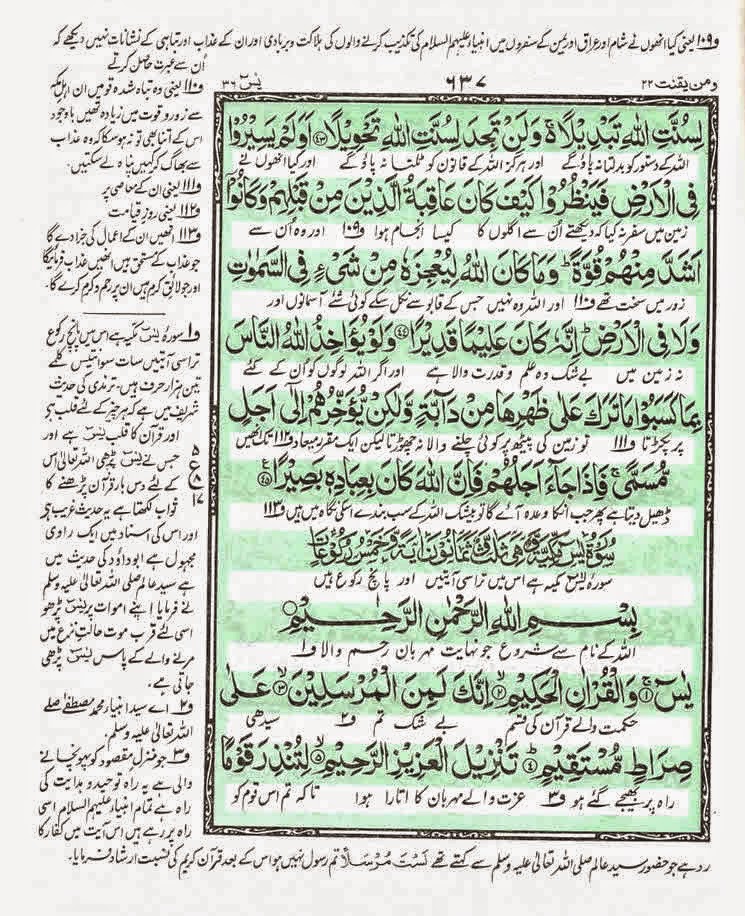 و۱۰۹ یعنی کیا انھوں نے شام اور عراق اور یمن کے سفروں میں انبیاء علیہم السلام کی تکذیب کرنے والوں کی ہلاکت و بربادی اور ان کے عذاب اور تباہی کے نشانات نہیں دیکھے کہ
اُن سے عبرت حاصل کرتے
ومن یقنت ۲۲
۶۳۷
یٰسٓ ۳۶
لِسُنَّتِ اللّٰهِ تَبْدِيْلًا ۚ وَلَنْ تَجِدَ لِسُنَّتِ اللّٰهِ تَحْوِيْلًا ﴿۴۳﴾ اَوَلَمْ يَسِيْرُوْا
اللہ کے دستور کو بدلتا نہ پاؤ گے اور ہرگز اللہ کے قانون کو ٹلتا نہ پاؤ گے اور کیا انھوں نے
فِي الْاَرْضِ فَيَنْظُرُوْا كَيْفَ كَانَ عَاقِبَةُ الَّذِيْنَ مِنْ قَبْلِهِمْ وَكَانُوْٓا
زمین میں سفر نہ کیا کہ دیکھتے اُن سے اگلوں کا کیسا انجام ہوا و۱۰۹ اور وہ اُن سے
اَشَدَّ مِنْهُمْ قُوَّةً ؕ وَمَا كَانَ اللّٰهُ لِيُعْجِزَهٗ مِنْ شَيْءٍ فِي السَّمٰوٰتِ
زور میں سخت تھے و۱۱۰ اور اللہ وہ نہیں جس کے قابو سے نکل سکے کوئی شے آسمانوں اور
وَلَا فِي الْاَرْضِ ؕ اِنَّهٗ كَانَ عَلِيْمًا قَدِيْرًا ﴿۴۴﴾ وَلَوْ يُؤَاخِذُ اللّٰهُ النَّاسَ
نہ زمین میں بے شک وہ علم و قدرت والا ہے اور اگر اللہ لوگوں کو اُن کے کئے
بِمَا كَسَبُوْا مَا تَرَكَ عَلٰى ظَهْرِهَا مِنْ دَآبَّةٍ وَّلٰكِنْ يُّؤَخِّرُهُمْ اِلٰٓى اَجَلٍ
پر پکڑتا و۱۱۱ تو زمین کی پیٹھ پر کوئی چلنے والا نہ چھوڑتا لیکن ایک مقرر میعاد و۱۱۲ تک انھیں
مُّسَمًّى ۚ فَاِذَا جَآءَ اَجَلُهُمْ فَاِنَّ اللّٰهَ كَانَ بِعِبَادِهٖ بَصِيْرًا ﴿۴۵﴾
ڈھیل دیتا ہے پھر جب انکا وعدہ آئے گا تو بیشک اللہ کے سب بندے اسکی نگاہ میں ہیں و۱۱۳
سُوْرَةُ يٰسٓ مَكِّيَّةٌ وَّهِيَ ثَلٰثٌ وَّثَمَانُوْنَ اٰيَةً وَّخَمْسُ رُكُوْعَاتٍ
سورۂ یٰسٓ مکیہ ہے اس میں تراسی آیتیں اور پانچ رکوع ہیں
بِسْمِ اللّٰهِ الرَّحْمٰنِ الرَّحِيْمِ
اللہ کے نام سے شروع جو نہایت مہربان رحم والا و۱
يٰسٓ ﴿۱﴾ وَالْقُرْاٰنِ الْحَكِيْمِ ﴿۲﴾ اِنَّكَ لَمِنَ الْمُرْسَلِيْنَ ﴿۳﴾ عَلٰى
حکمت والے قرآن کی قسم بے شک تم و۲ سیدھی
صِرَاطٍ مُّسْتَقِيْمٍ ﴿۴﴾ تَنْزِيْلَ الْعَزِيْزِ الرَّحِيْمِ ﴿۵﴾ لِتُنْذِرَ قَوْمًا
راہ پر بھیجے گئے ہو و۳ عزت والے مہربان کا اتارا ہوا تاکہ تم اس قوم کو
و۱۱۰ یعنی وہ تباہ شدہ قومیں ان اہلِ مکہ
سے زور و قوت میں زیادہ تھیں باوجود
اس کے اتنا بھی تو نہ ہو سکا کہ وہ عذاب
سے بھاگ کر کہیں پناہ لے سکتیں۔
و۱۱۱ یعنی ان کے معاصی پر
و۱۱۲ یعنی روزِ قیامت
و۱۱۳ انھیں ان کے اعمال کی جزا دے گا
جو عذاب کے مستحق ہیں انھیں عذاب فرمائیگا
اور جو لائقِ کرم ہیں ان پر رحم و کرم کرے گا۔
و۱ سورۂ یٰسٓ مکیہ ہے اس میں پانچ رکوع
تراسی آیتیں سات سو انتیس کلمے
تین ہزار حرف ہیں۔ ترمذی کی حدیث
شریف میں ہے کہ ہر چیز کے لئے قلب ہے
اور قرآن کا قلب یٰسٓ ہے اور
جس نے یٰسٓ پڑھی اللہ تعالیٰ اس
کے لئے دس بار قرآن پڑھنے کا
ثواب لکھتا ہے یہ حدیث غریب ہے
اور اس کی اسناد میں ایک راوی
مجہول ہے ابوداؤد کی حدیث میں
ہے سید عالم صلی اللہ تعالیٰ علیہ وسلم
نے فرمایا اپنے اموات پر یٰسٓ پڑھو
اسی لئے قربِ موت حالتِ نزع میں
مرنے والے کے پاس یٰسٓ پڑھی
جاتی ہے۔
و۲ اے سید انبیاء محمد مصطفٰے صلے
اللہ تعالیٰ علیہ وسلم۔
و۳ جو منزلِ مقصود کو پہونچانے
والی ہے یہ راہ توحید و ہدایت کی
راہ ہے تمام انبیاء علیہم السلام اسی
راہ پر رہے ہیں اس آیت میں کفار کا
۵
ع
۸
۱۷
رد ہے جو حضور سید عالم صلی اللہ تعالیٰ علیہ وسلم سے کہتے تھے لَسْتَ مُرْسَلًا تم رسول نہیں ہو اس کے بعد قرآن کریم کی نسبت ارشاد فرمایا۔